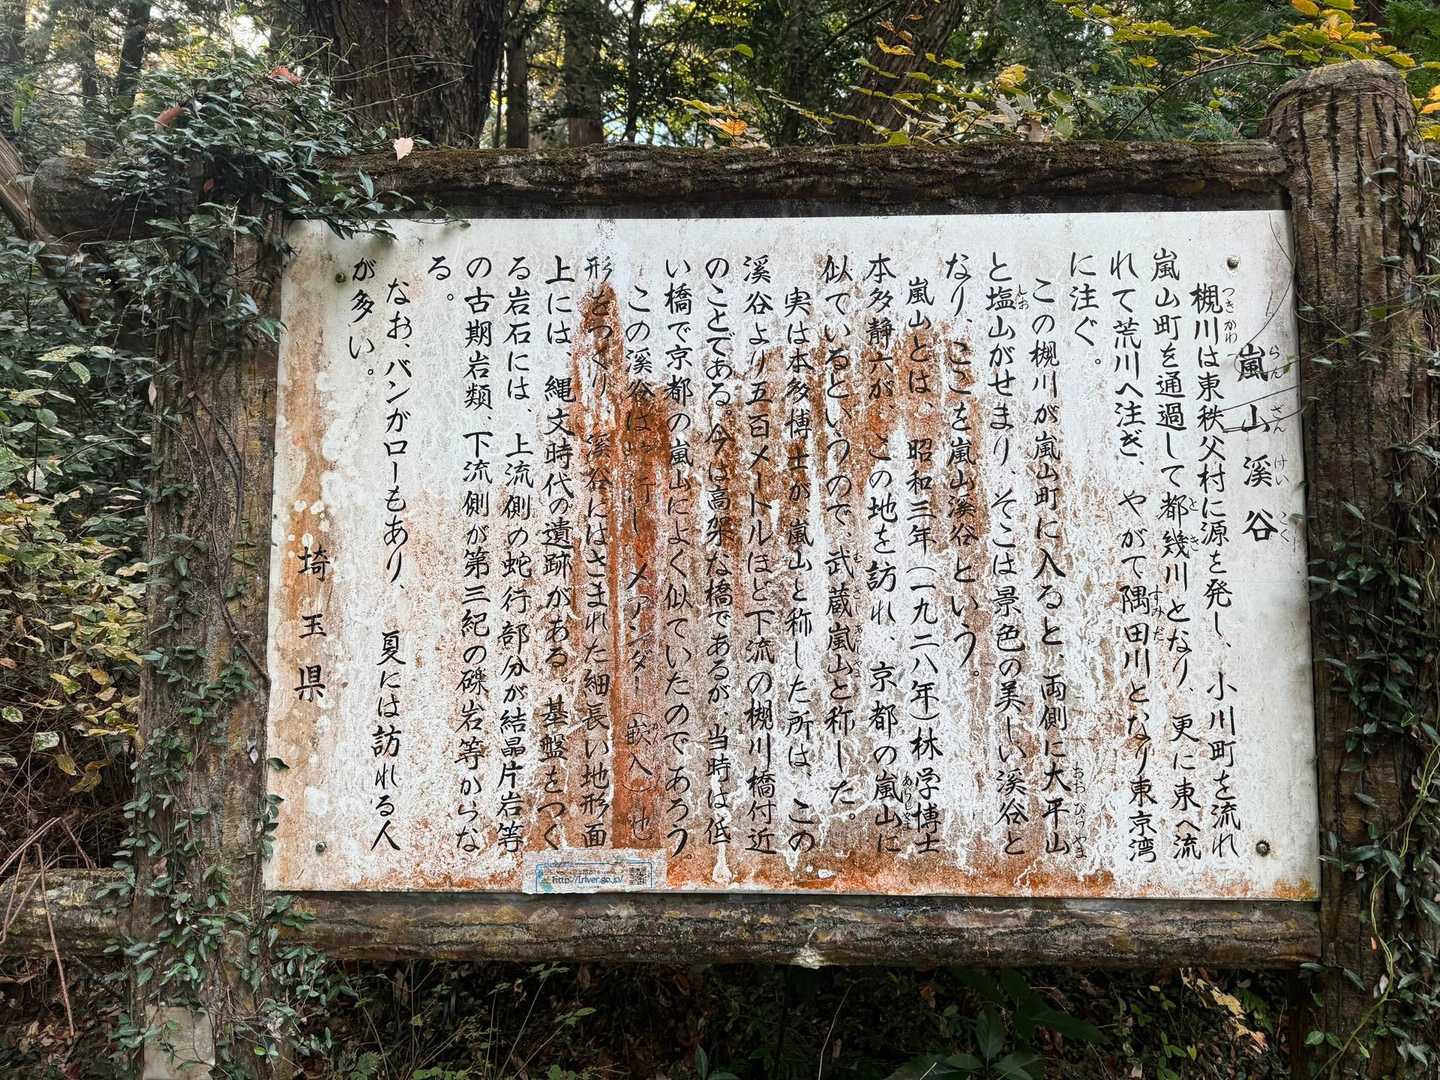 嵐山溪谷
らんざんけいこく
槻川は東秩父村に源を発し、小川町を流れ
つきかわ
嵐山町を通過して都幾川となり、更に東へ流
とき
れて荒川へ注ぎ、やがて隅田川となり東京湾
すみだ
に注ぐ。
この槻川が嵐山町に入ると、両側に大平山
おおびらやま
と塩山がせまり、そこは景色の美しい溪谷と
しお
なり、ここを嵐山溪谷という。
嵐山とは、昭和三年(一九二八年)林学博士
本多静六が、この地を訪れ、京都の嵐山に
あらしやま
似ているというので、武蔵嵐山と称した。
実は本多博士が、嵐山と称した所は、この
溪谷より五百メートルほど下流の槻川橋付近
のことである。今は高架な橋であるが、当時は低
い橋で京都の嵐山によく似ていたのであろう。
この溪谷は メアンダー(嵌入)地
形をつくり、溪谷にはさまれた細長い地形面
上には、縄文時代の遺跡がある。基盤をつく
る岩石には、上流側の蛇行部分が結晶片岩等
の古期岩類、下流側が第三紀の礫岩等からな
る。
なお、バンガローもあり、夏には訪れる人
が多い。
埼玉県
http://i.river.go.jp/